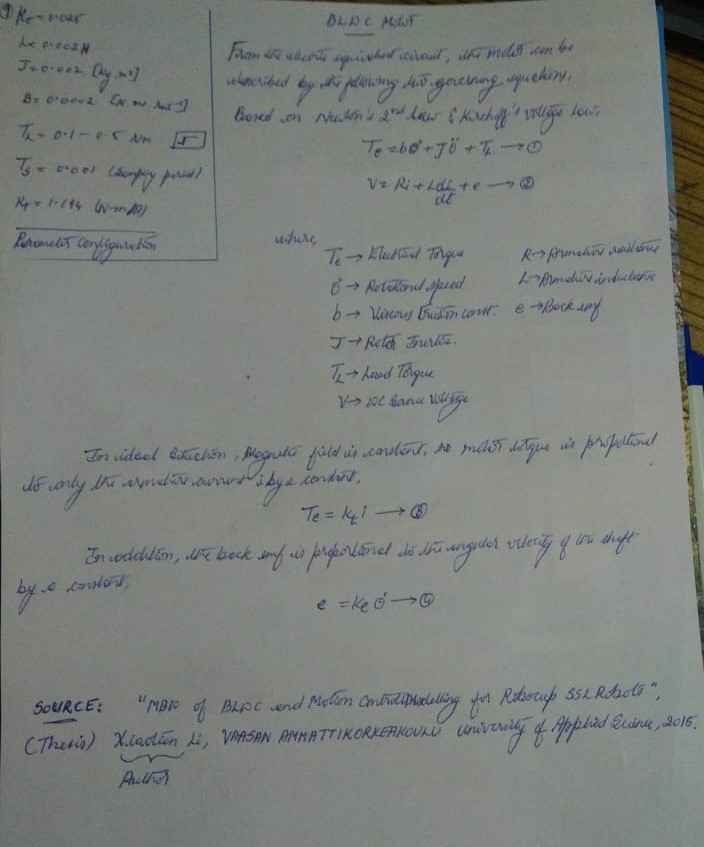 ① Ke = 0.025
L = 0.002 H
J = 0.002 [kg.m²]
B = 0.0002
TL = 0.1 – 0.5 Nm
Ts = 0.001 (Sampling period)
Kt = 1.194
Parameter configuration
BLDC Motor
From the electric equivalent circuit, the motor can be
described by the following two governing equations,
Based on Newton's 2nd law & Kirchoff's voltage law,
Te = bθ̇ + Jθ̈ + TL → ①
V = Ri + L di/dt + e → ②
where,
Te → Electrical Torque
θ̇ → Rotational speed
b → Viscous friction const.
J → Rotor Inertia.
TL → Load Torque
V → DC Source Voltage
R → Armature resistance
L → Armature inductance
e → Back emf
In ideal situation, Magnetic field is constant. so motor torque is proportional
to only the armature current i by a constant,
Te = kt i → ③
In addition, the back emf is proportional to the angular velocity of the shaft
by a constant,
e = Ke θ̇ → ④
SOURCE: "MBD of BLDC and Motion Control Modelling for Robocup SSL Robots",
(Thesis) Li, VAASAN AMMATTIKORKEAKOULU University of Applied Science, 2015.
Author